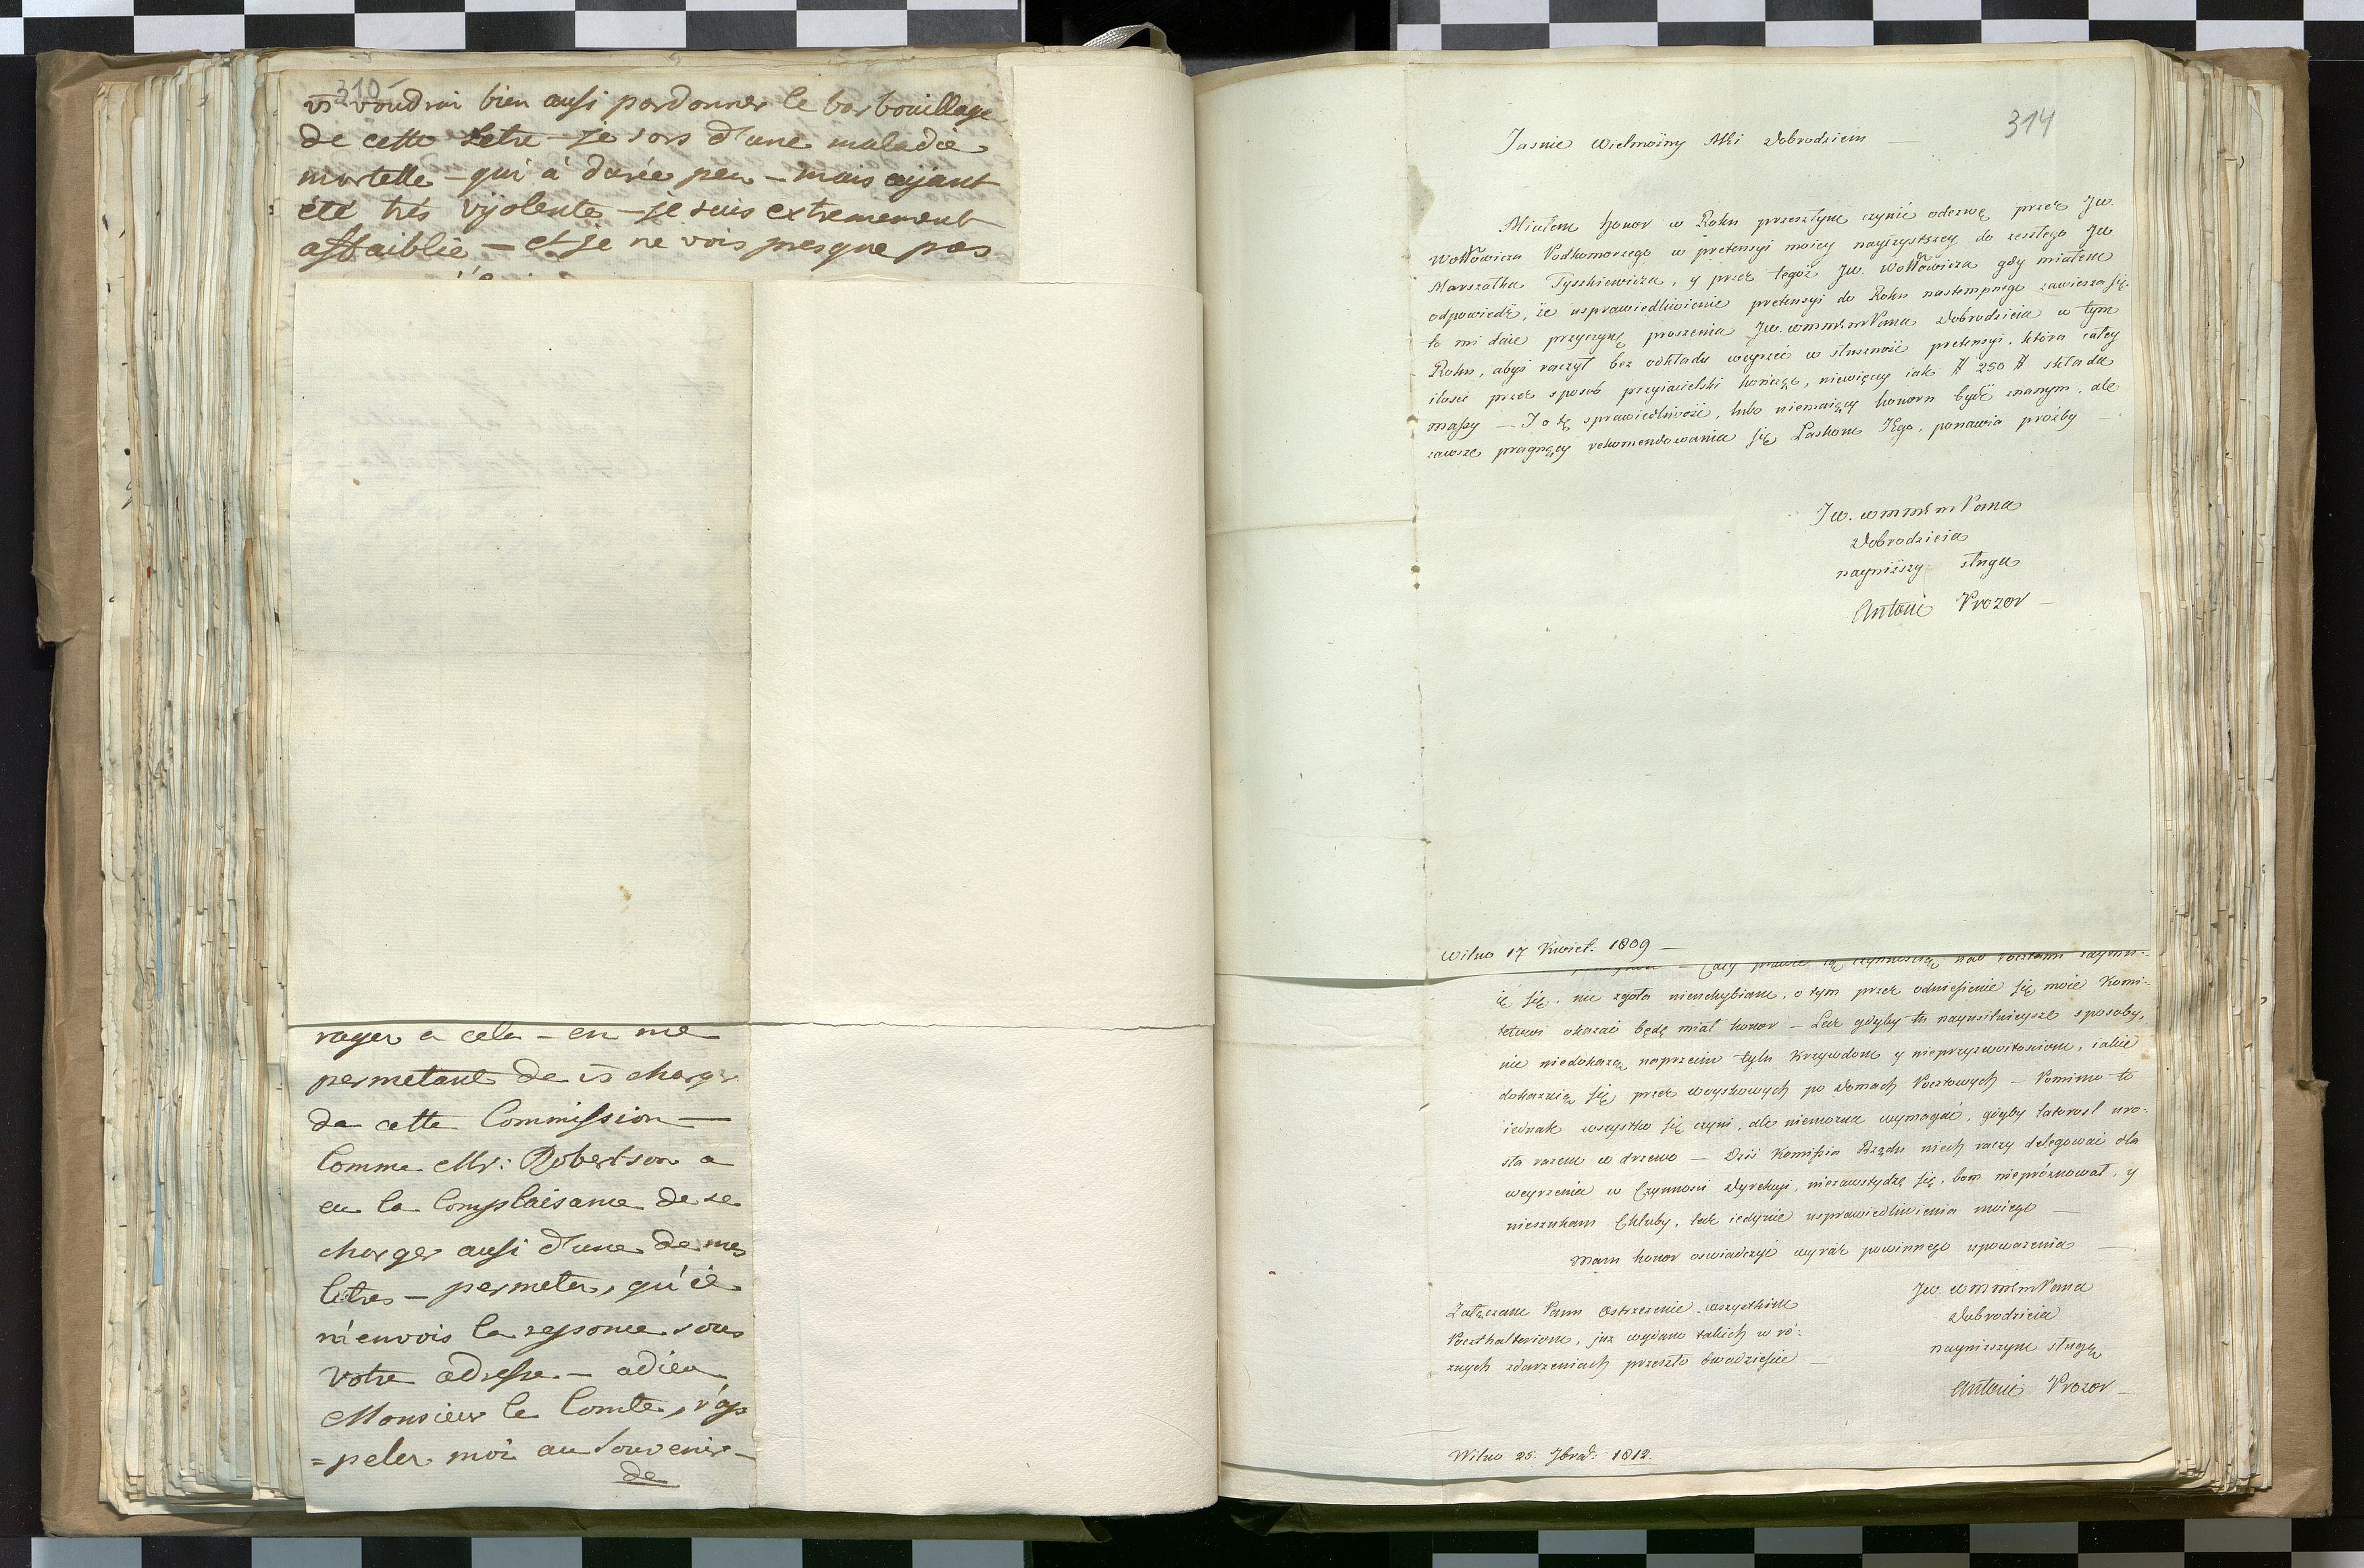 310
vs voudrai bien ausi pardonner le barbouillage
de cette Letre – je sors d'une maladie
mortelle – qui à durée peu – mais aÿant
été trés vÿolente – je suis extremement
affaiblie – et je ne vois presque pas
rager a cela – en me
permetant de vs charger
de cette Commission –
Comme Mr: Robertson a
eu la Complaisance de se
charger ausi d'une de mes
letres – permeter, qu'il
m'envois la reponce sous
votre adresse. – adieu
Monsieur le Comte, rap
= peler moi au souvenir –
de
314
Jasnie Wielmożny Mci Dobrodzieiu
Miałem honor w Roku przeszłym czynić odezwę przez JW.
Wołłowicza Podkomorzego w pretensyi moiey nayczystszey do zeszłego JW
Marszałka Tyszkiewicza, y przez tegoż JW. Wołłowicza gdy miałem
odpowiedź, że usprawiedliwienie pretensyi do Roku nastempnego zawiesza się.
to mi daie przyczynę proszenia JW. WMMPana Dobrodzieia w tym
Roku, abyś raczył bez odkładu weyrzeć w słuszność pretensyi, która całey
ilości przez sposób przyiacielski kończąc, niewięcey iak # 250 # składa
massy — I o tę sprawiedliwość, lubo niemaiący honoru bydź znanym, ale
zawsze pragnący rekomendowania się Łaskom JEgo, ponawia proźby
JW. WMMPana
Dobrodzieia
nayniższy sługa
Antoni Prozor
Wilno 17 Kwiet: 1809 —
ie się, nic zgoła nieuchybiam, o tym przez odniesienie się moie Komi-
tetowi okazać będę miał honor — Lecz gdyby tu nayusilnieysze sposoby,
nic niedokażą naprzeciw tylu Krzywdom y nieprzyzwoitościom, iakie
dokazuią się przez woyskowych po Domach Pocztowych — Pomimo to
iednak wszystko się czyni, ale niemożna wymagać, gdyby latorosl uro-
sła razem w drzewo — Dziś Komissia Rządu niech raczy delegować dla
weyrzenia w Czynności Dyrekcyi, niezawstydzę się, bom niepróżnował, y
nieszukam Chluby, lecz iedynie usprawiedliwienia moiego —
Mam honor oswiadczyć wyraz powinnego upoważenia —
Załączam Panu Ostrzeżenie wszystkim
Poczthalterom, już wydane takich w ró-
żnych zdarzeniach przeszło dwadzieście —
JW. WMMPana
Dobrodzieia
nayniższym sługą
Antoni Prozor
Wilno 25. 1812.